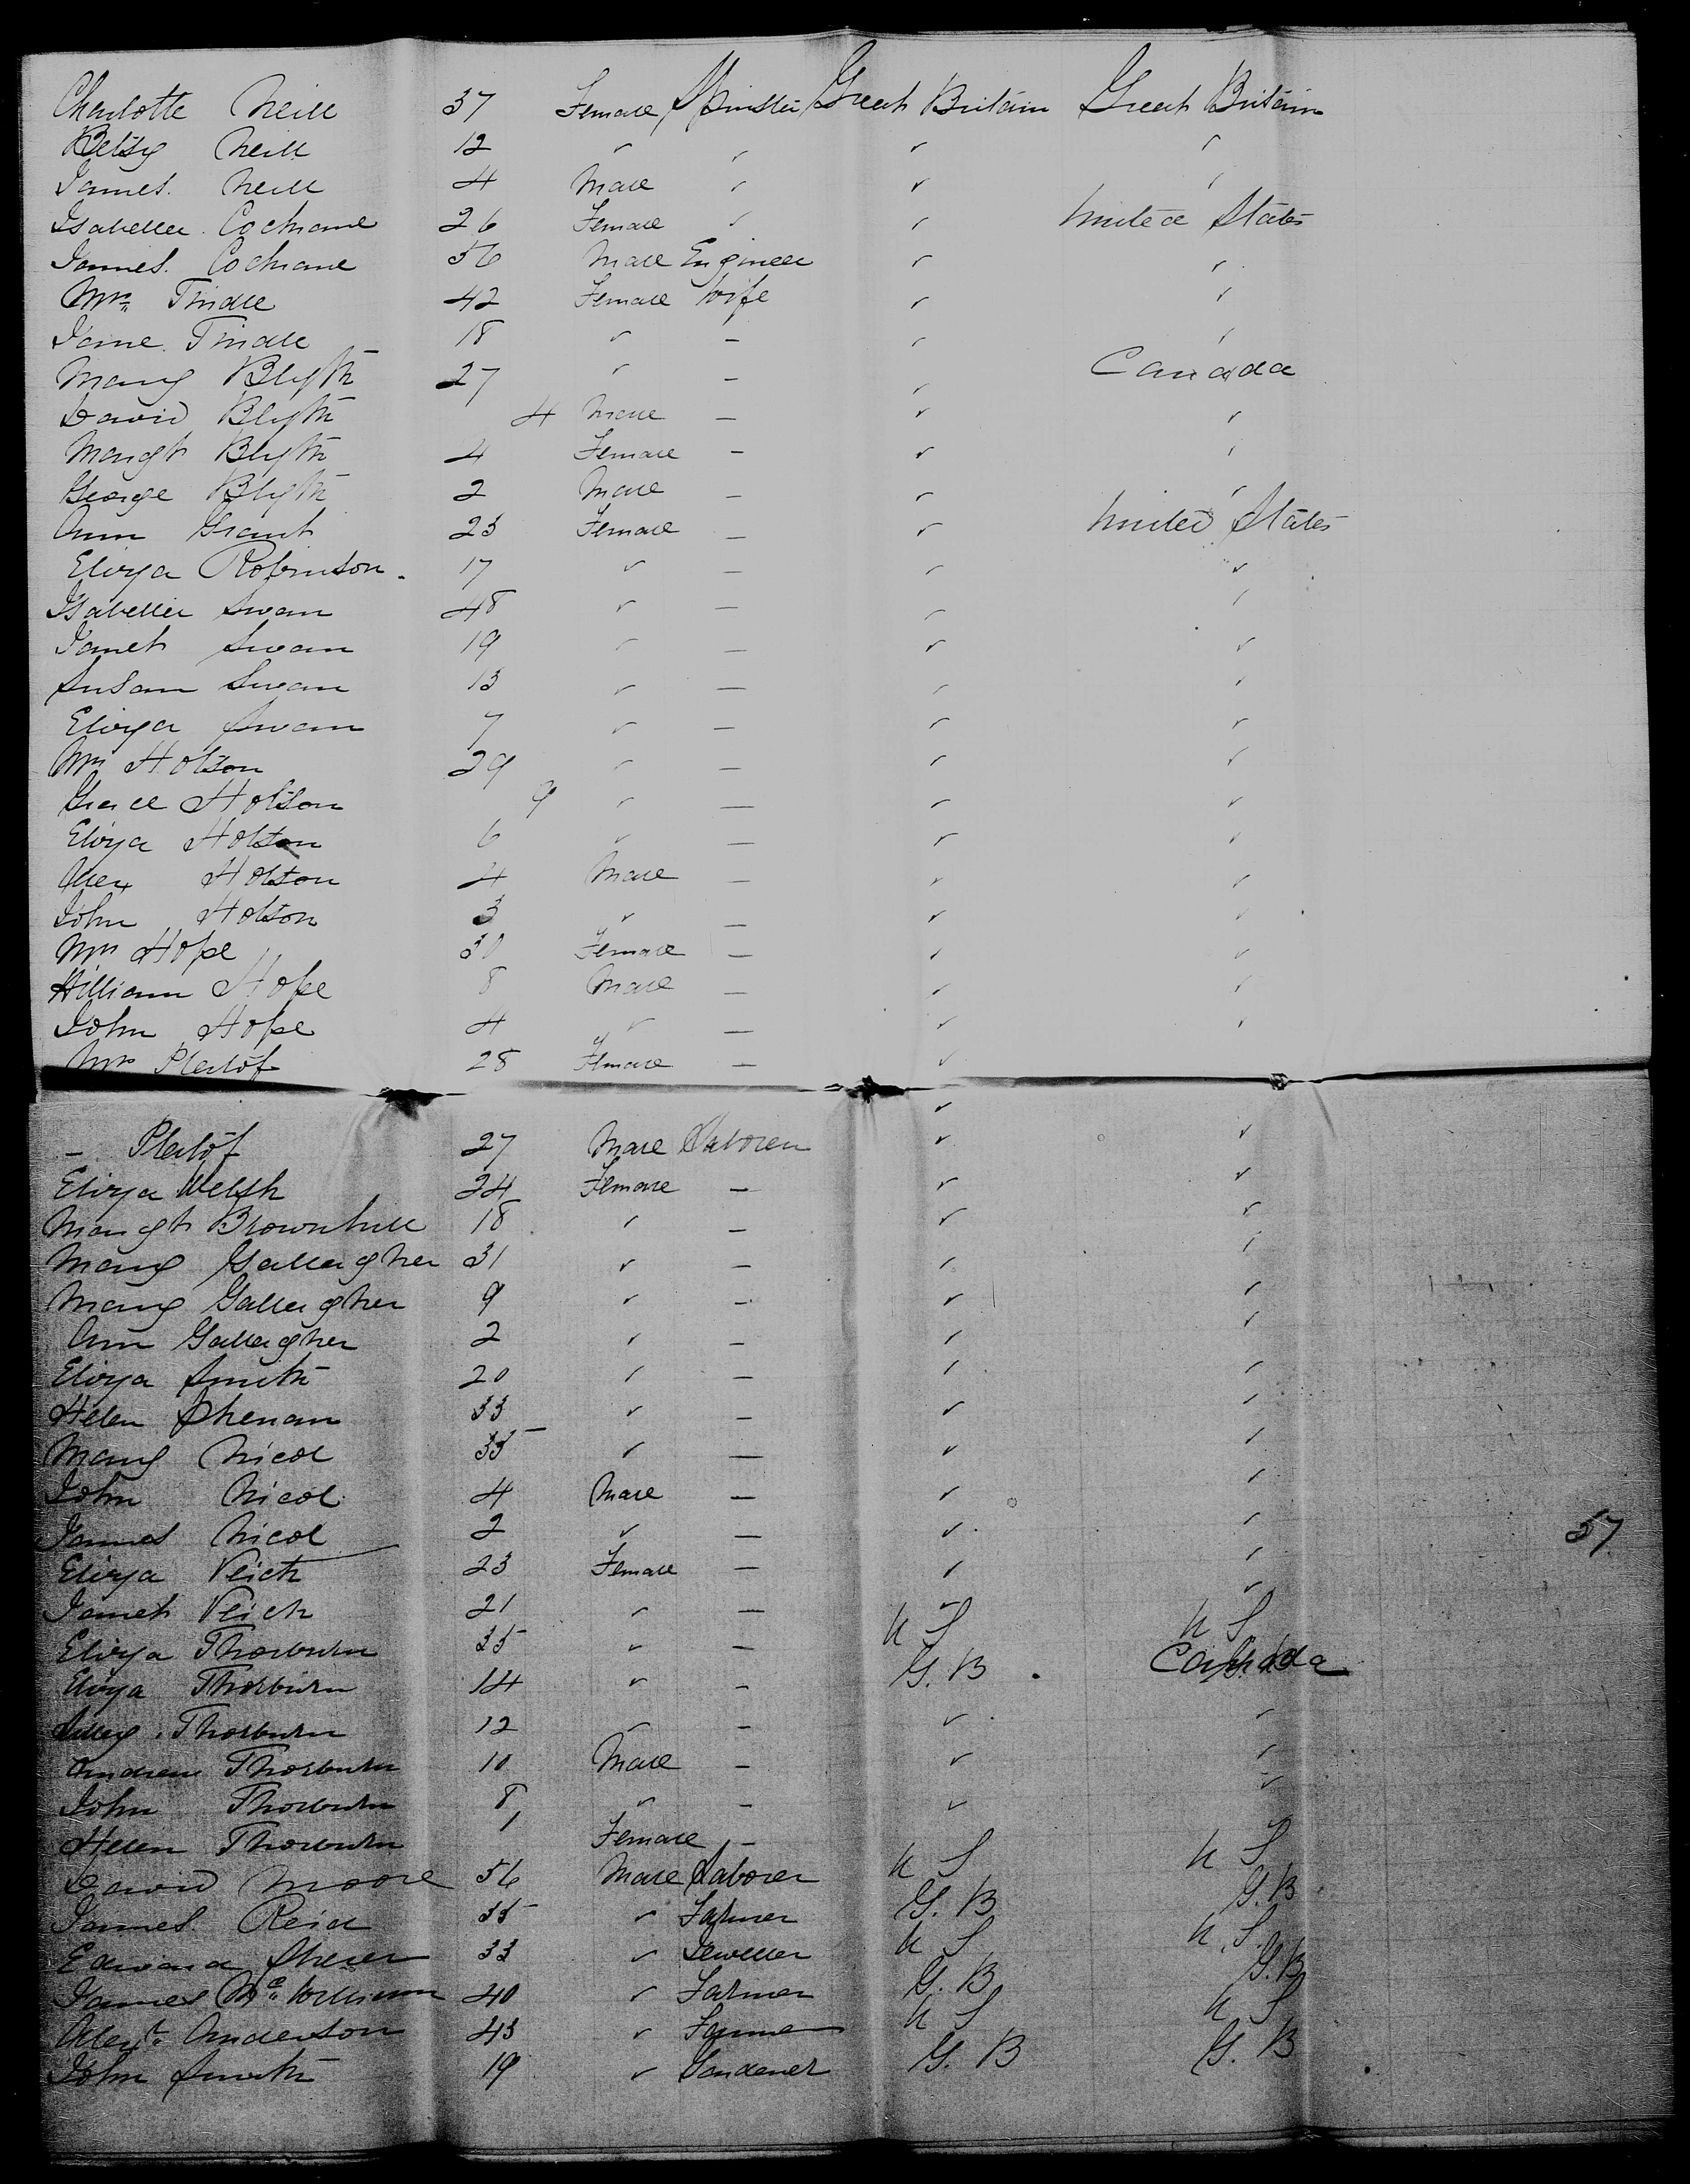 Charlotte Neill 37 Female Spinster Great Britain Great Britain
Betsy Neill 12 " " " "
James Neill 4 Male " " "
Isabella Cochrane 26 Female " " United States
James Cochrane 56 Male Engineer " "
Mrs Tindle 42 Female Wife " "
Jane Tindle 18 " - " "
Mary Blyth 27 " - " Canada
David Blyth 4 Male - " "
Margt Blyth 4 Female - " "
George Blyth 2 Male - " "
Ann Grant 23 Female - " United States
Eliza Robinson 17 " - " "
Isabella Swan 48 " - " "
Janet Swan 19 " - " "
Susan Swan 13 " - " "
Eliza Swan 7 " - " "
Mrs Hotson 29 " - " "
Grace Hotson 9 " - " "
Eliza Hotson 6 " - " "
Alex Hotson 4 Male - " "
John Hotson 3 " - " "
Mrs Hope 30 Female - " "
William Hope 8 Male - " "
John Hope 4 " - " "
Mrs 28 Female - "
- 27 Male Laborer " "
Eliza Welsh 24 Female - " "
Margt Brownhill 18 " - " "
Mary Gallagher 31 " - " "
Mary Gallagher 9 " - " "
Ann Gallagher 2 " - " "
Eliza Smith 20 " - " "
Helen 33 " - " "
Mary Nicol 35 " - " "
John Nicol 4 Male - " "
James Nicol 2 " - " "
57
Eliza Veich 23 Female - " "
Janet Veich 21 " - " "
Eliza Thorburn 35 " - U S U S
Eliza Thorburn 14 " - G.B Canada
Thorburn 12 " - " "
Andrew Thorburn 10 Male - " "
John Thorburn 8 " - " "
Helen Thorburn 1 Female -
David Moore 56 Male Laborer U S U S
James Reid 35 " Farmer G.B G.B
Edward 33 " Jeweller U S U.S.
James Mc William 40 " Farmer G.B G.B
Alexr Anderson 43 " Farmer U S U S
John Smith 19 " Gardener G.B G.B